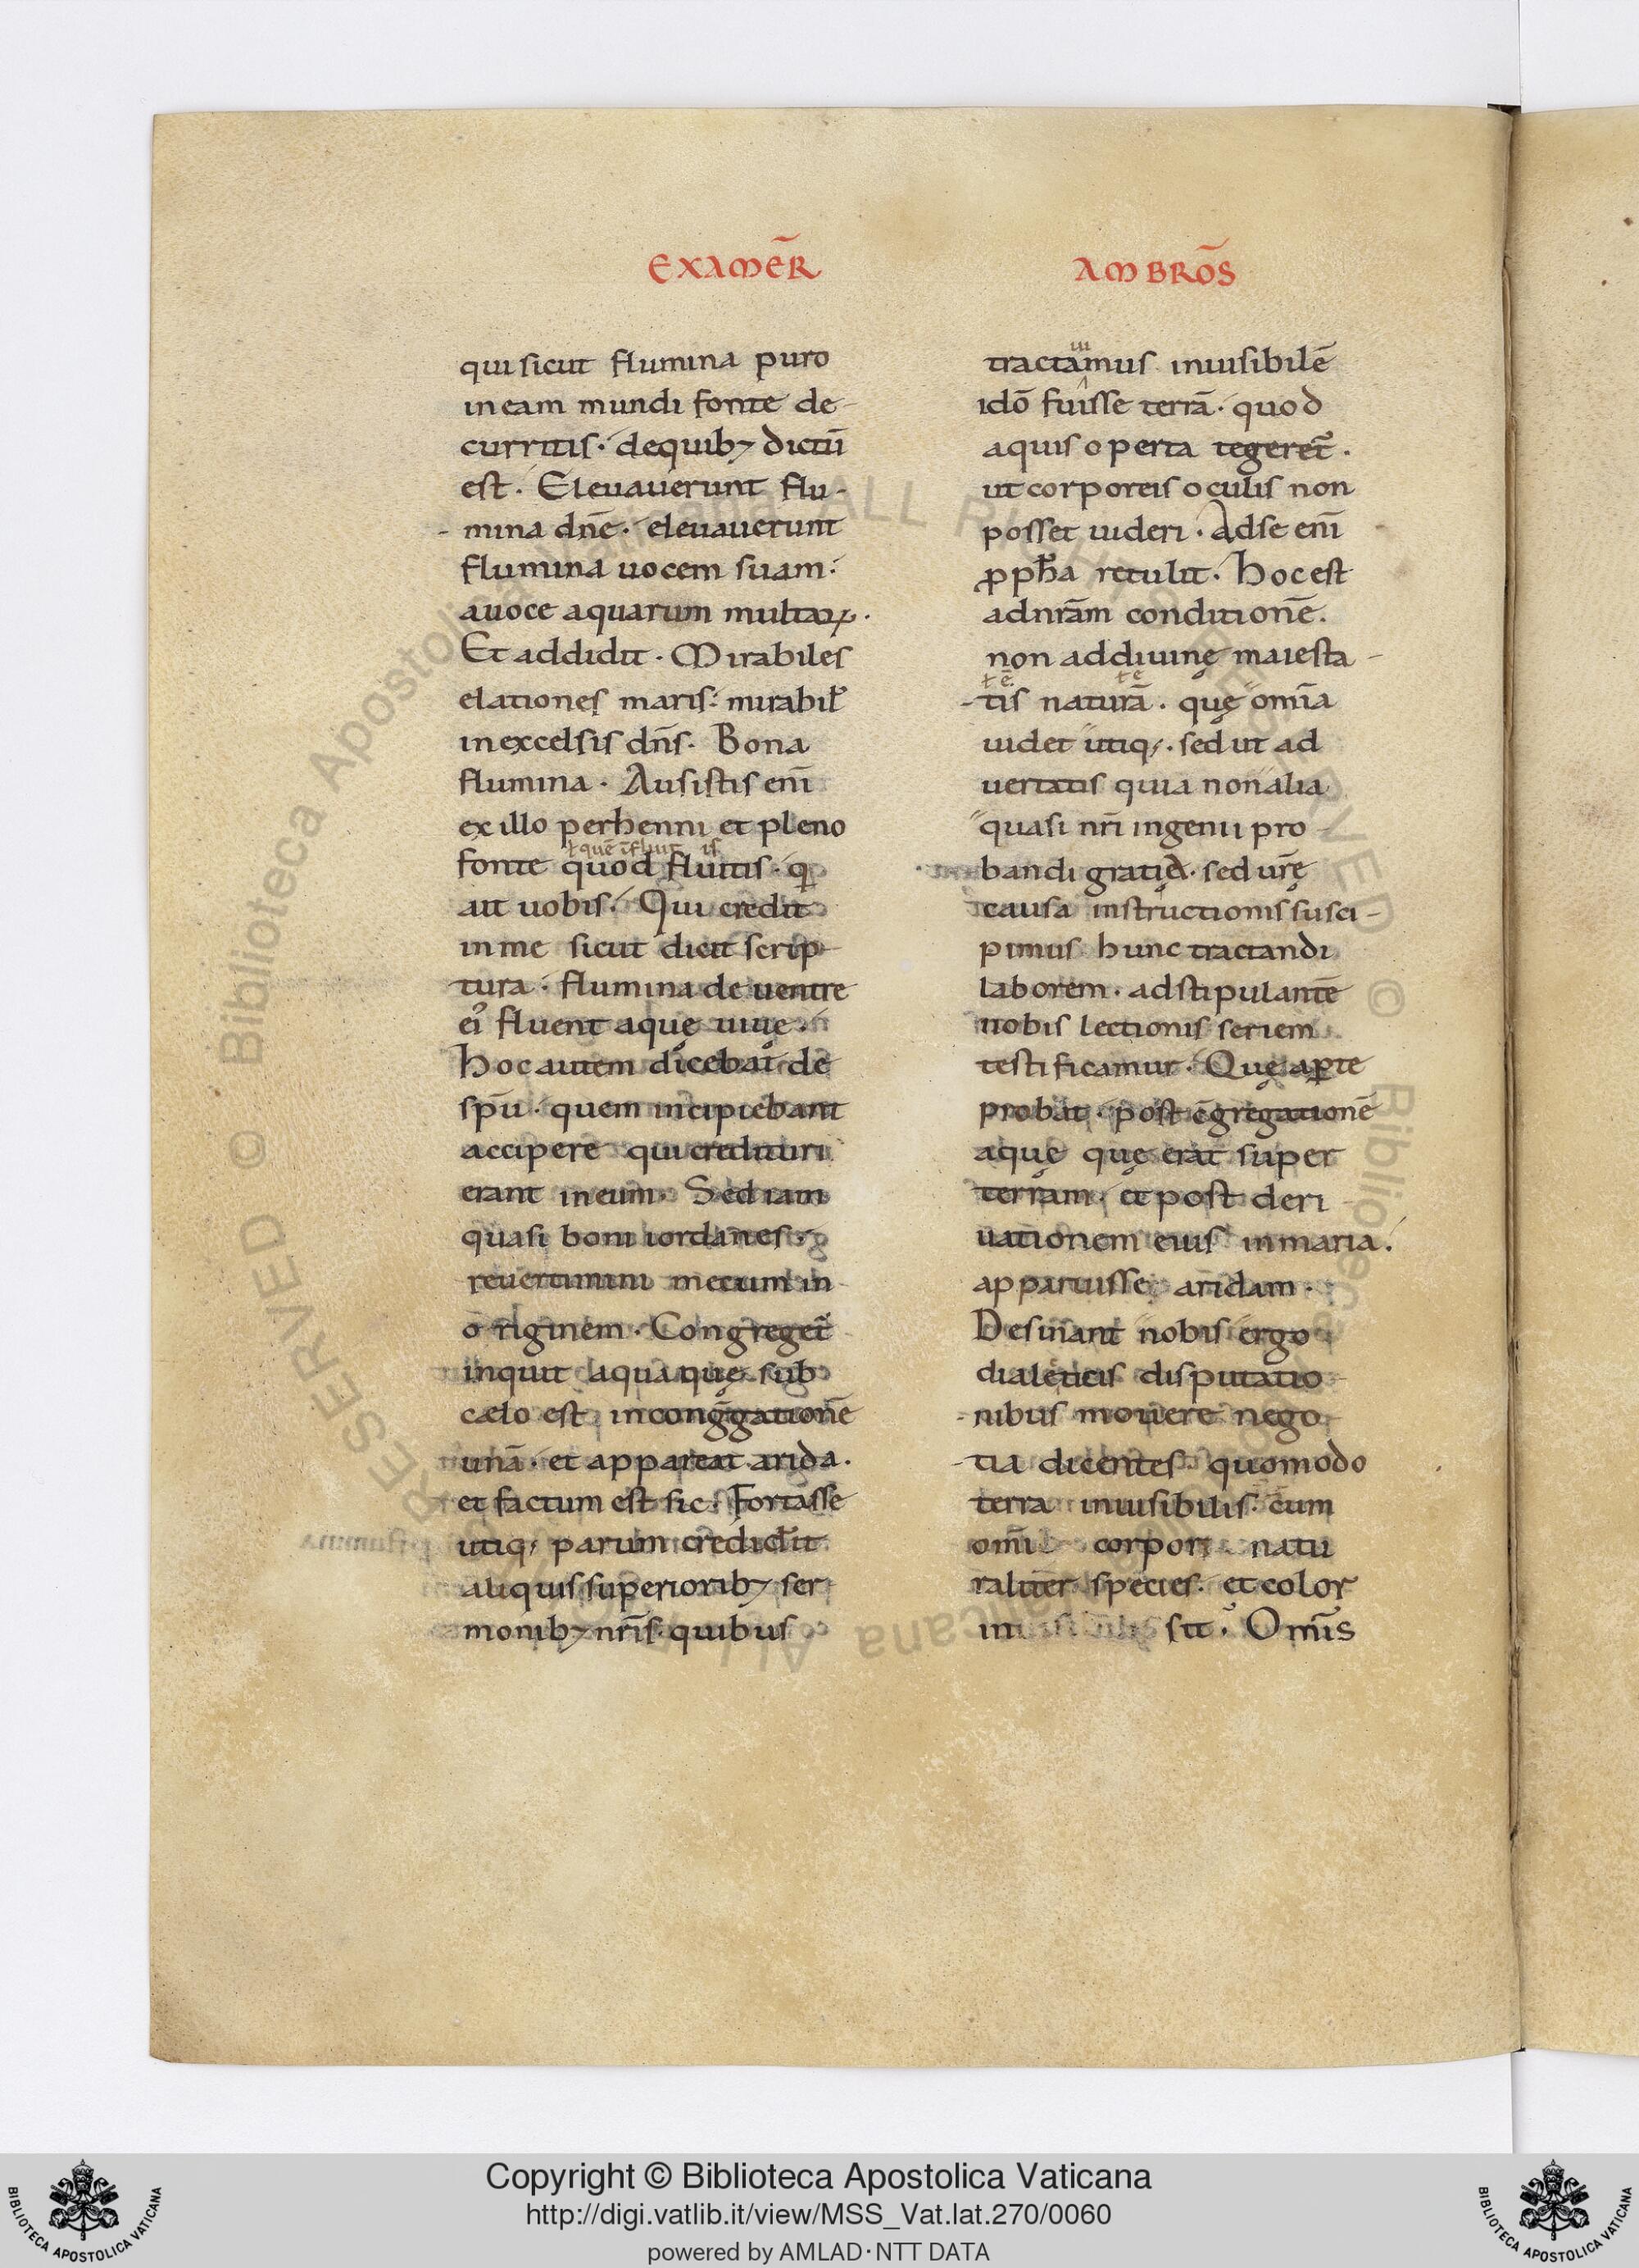 EXAMER̄
qui sicut flumina puro
in eam mundi fonte de-
curritis. de quib; dictū
est. Eleuauerunt flu-
mina dn̄e. eleuauerunt
flumina uocem suam.
a uoce aquarum multaꝝ.
Et addidit. Mirabiles
elationes maris: mirabil̓
in excelsis dn̄s. Bona
flumina. Ausistis enī
ex illo perhenni et pleno
ł quē īfluit is
fonte quod fluitis. q̄
ait uobis. Qui credit
in me sicut dicit scrip-
tura. flumina de uentre
ei᾽ fluent aquę uiuę.
Hoc autem dicebat de
sp̄u. quem incipiebant
accipere qui credituri
erant in eum. Sed iam
quasi boni iordanes
reuertimini mecum in
originem. Congreget᷑
inquit aqua quę sub
cælo est in cong̅gationē
unā. et appareat arida.
et factum est sic. Fortasse
utiq; parum credid̓it
aliquis superiorib; ser
monib; nr̄is quibus
AMBRŌS
ui
tractamus inuisibilē
idō fuisse terrā. quod
aquis operta tegeret᷑.
ut corporeis oculis non
posset uideri. Ad se enī
ꝓph̄a retulit. Hoc est
ad nr̄am conditionē.
non ad diuinę maiesta-
ł ē. ł ē
tis naturā. quę omīa
uidet utiq;. sed ut ad
uertatis quia non alia
quasi nr̄i ingenii pro-
bandi gratia. sed ur̄ę
causa instructionis susci-
pimus hunc tractandi
laborem. adstipulantē
nobis lectionis seriem
testificamur. Quę aꝑte
probat. post c̄gregationē
aquę quę erat super
terram. et post deri
uationem eius in maria.
apparuisse aridam.
Desinant nobis ergo
dialeticis disputatio-
nibus mouere nego-
tia dicentes. quomodo
terra inuisibilis. cum
omī corpori natu
raliter species. et color
inuisibilis sit. Omīs
Copyright © Biblioteca Apostolica Vaticana
http://digi.vatlib.it/view/MSS_Vat.lat.270/0060
powered by AMLAD·NTT DATA
BIBLIOTECA APOSTOLICA VATICANA
BIBLIOTECA APOSTOLICA VATICANA